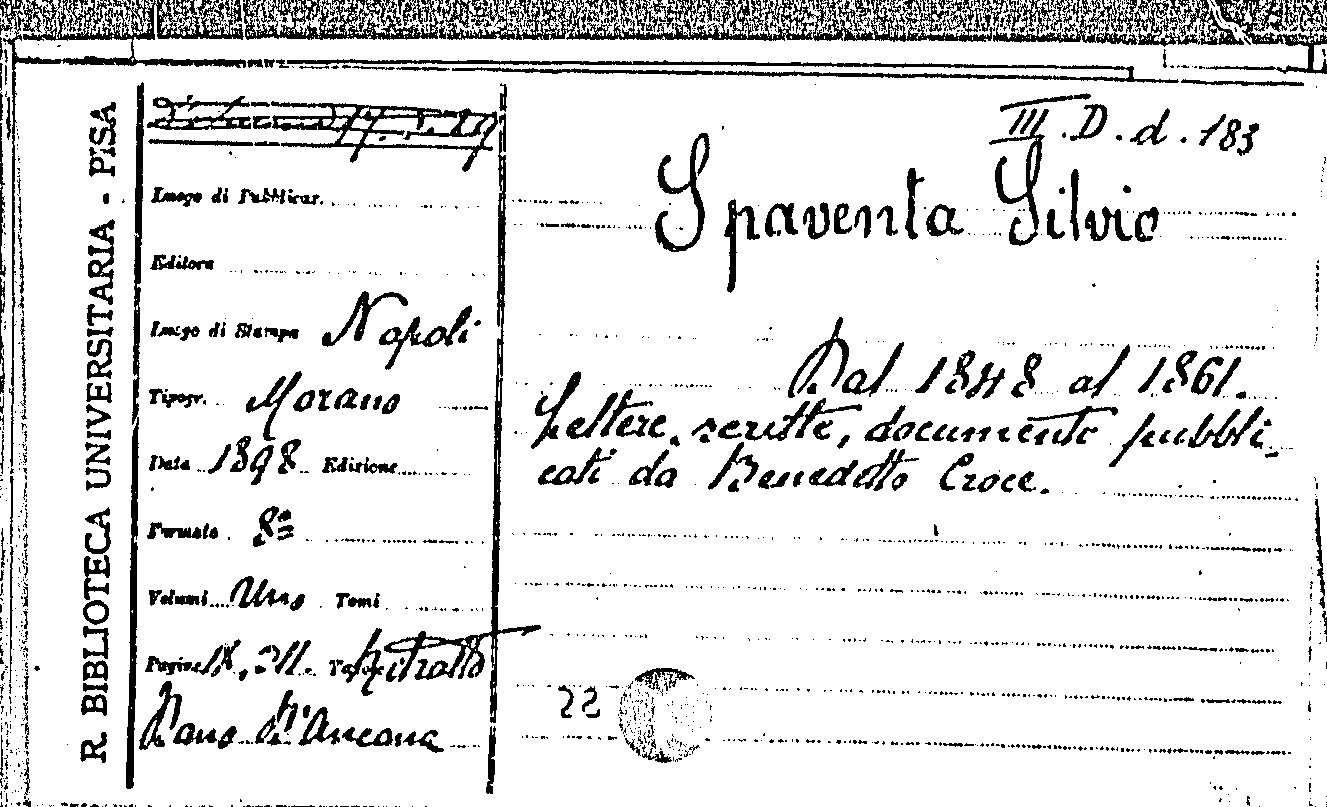 R. BIBLIOTECA UNIVERSITARIA - PISA
III. D. d. 183
Spaventa Silvio
Luogo di Pubblicaz.
Editore
Luogo di Stampa Napoli
Tipogr. Morano
Data 1898 Edizione
Formato 8º
Volumi Uno Tomi
Pagine IX, 311. Ritratto
Dono D'Ancona
Dal 1848 al 1861.
Lettere, scritte, documenti pubbli-
cati da Benedetto Croce.
22